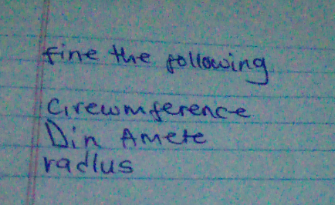 fine the following
cirewmference
Din Amete
radius